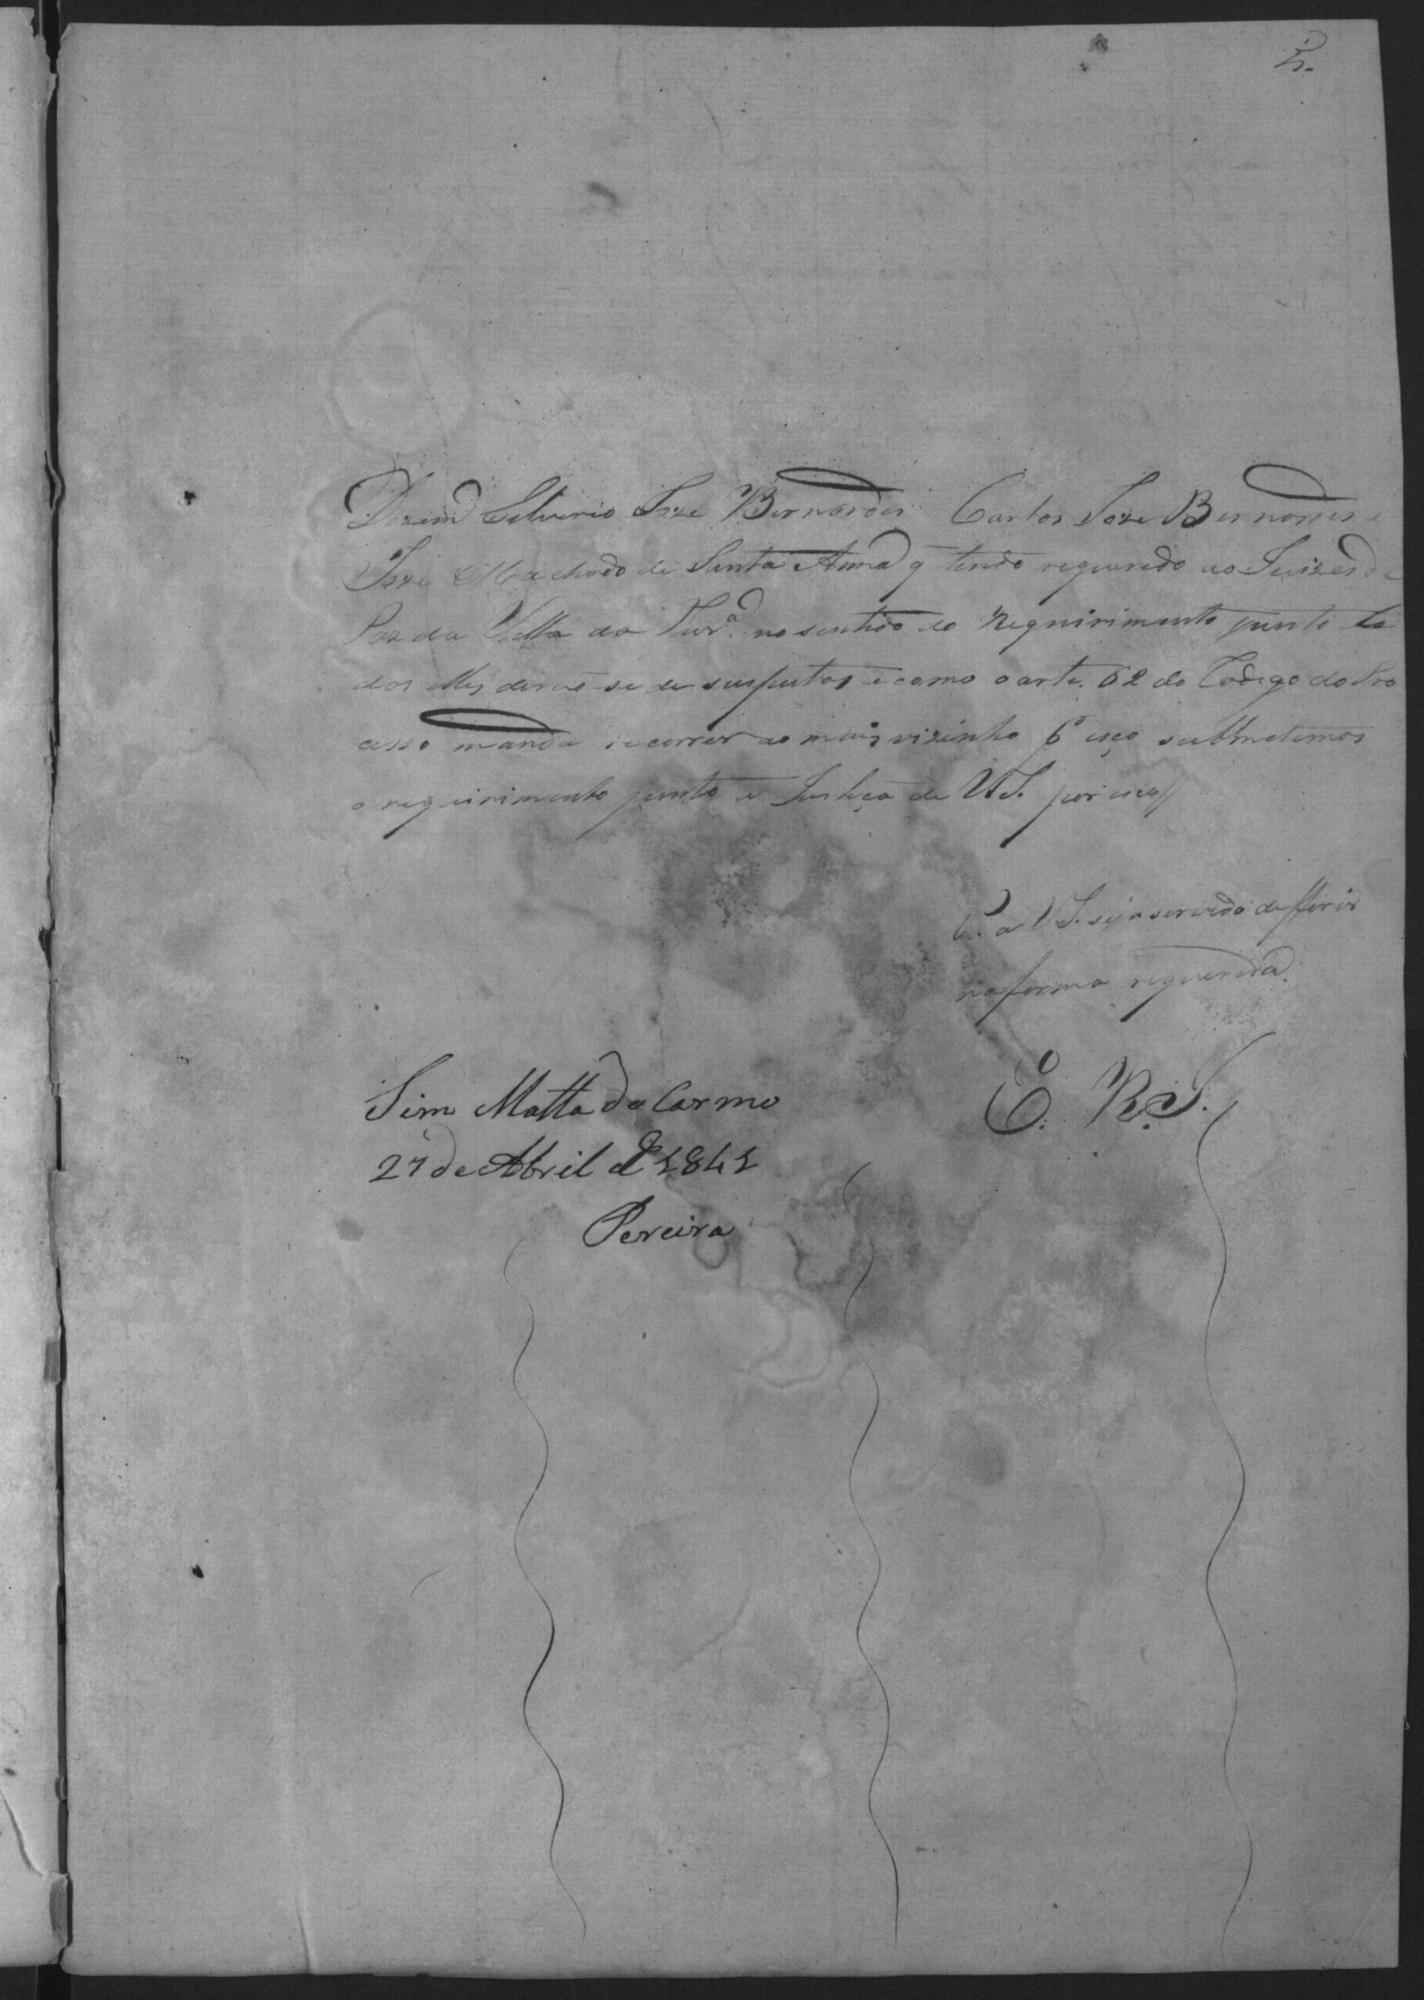 2.
Dizem Silverio Joze Bernardes Carlos Joze Bernardes e
Joze Machado de Santa Anna q tendo requerido ao Juizes de
Paz da Villa da no sentido do Requirimento junto to
dos elles derão se de suspeitos e como o arte. 62 do Codigo do Pro
cesso manda recorrer ao mais vizinho pr isço submetemos
o requirimento junto a Justiça de V S. por isço//
P. a V S. seja servido defferir
na forma requerida.
E. R. J.
Sim Matta do Carmo
27 de Abril de 1841
Pereira